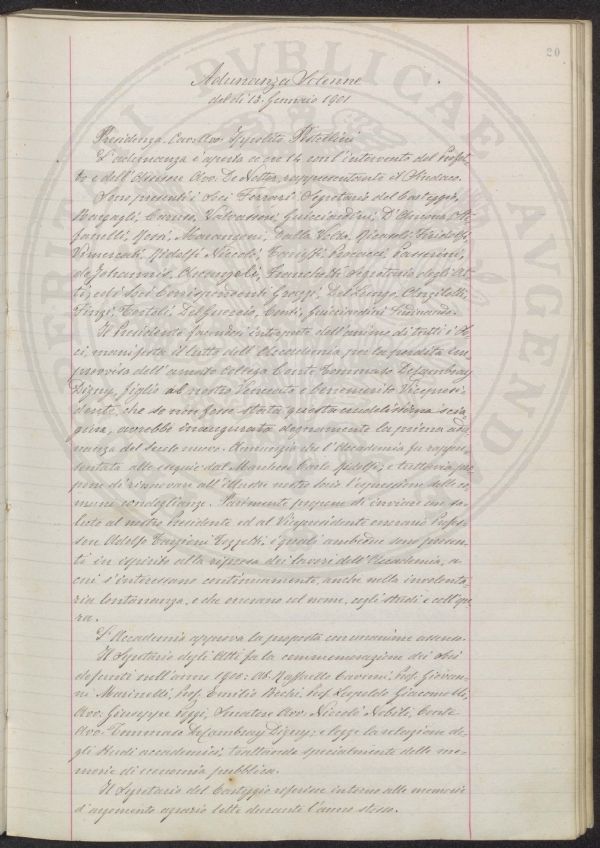 20
Adunanza Solenne
del dì 13 Gennaio 1901
Presidenza Cav. Avv. Ippolito Pestellini
L'adunanza è aperta a ore 14 con l'intervento del Prefet-
to e dell'Assessore Avv. De Notter rappresentante il Sindaco.
Sono presenti i Soci Ferrari, Segretario del Carteggio,
Bargagli, Caruso, Valvassori, Guicciardini, D'Ancona,
Marangoni, Dalla Volta, Ricasoli, Firidolfi,
Vimercati, Ridolfi Niccolò, Passerini,
de Johannis, Arcangeli, Franchetti Segretario degli At-
ti, ed i Soci Corrispondenti Grazzi, Del Lungo, Anzilotti,
Finzi, Bertoli, Del Guercio, Conti, Guicciardini Ferdinando.
Il Presidente facendosi interprete dell'animo di tutti i So-
ci, manifesta il lutto dell'Accademia per la perdita im-
provvisa dell'amato collega Conte Tommaso Decambray
Digny, figlio al nostro Venerato e benemerito Vicepresi-
dente, che se non fosse stata questa crudelissima scia-
gura, avrebbe inaugurato degnamente la prima adu-
nanza del secolo nuovo. Annunzia che l'Accademia fu rappre-
sentata alle esequie dal Marchese Carlo Ridolfi, e tuttavia pro-
pone di rinnovare all'illustre nostro Socio l'espressione delle co-
muni condoglianze. Parimente propone di inviare un sa-
luto al nostro Presidente ed al Vicepresidente onorario Profes-
sore Adolfo Targioni Tozzetti, i quali ambedue sono presen-
ti in ispirito alla ripresa dei lavori dell'Accademia, a
cui s'interessano continuamente, anche nella involonta-
ria lontananza, e che onorano col nome, cogli studi e coll'ope-
ra.
L'Accademia approva la proposta con unanime assenso.
Il Segretario degli Atti fa la commemorazione dei soci
defunti nell'anno 1900: Ab. Raffaello Caverni, Prof. Giovan-
ni Marinelli, Prof. Emilio Bechi, Prof. Leopoldo Giacomelli,
Avv. Giuseppe Poggi, Senatore Avv. Niccolò Nobili, Conte
Avv. Tommaso Decambray Digny; e legge la relazione de-
gli studi accademici, trattando specialmente delle me-
morie di economia pubblica.
Il Segretario del Carteggio riferisce intorno alle memorie
d'argomento agrario lette durante l'anno stesso.